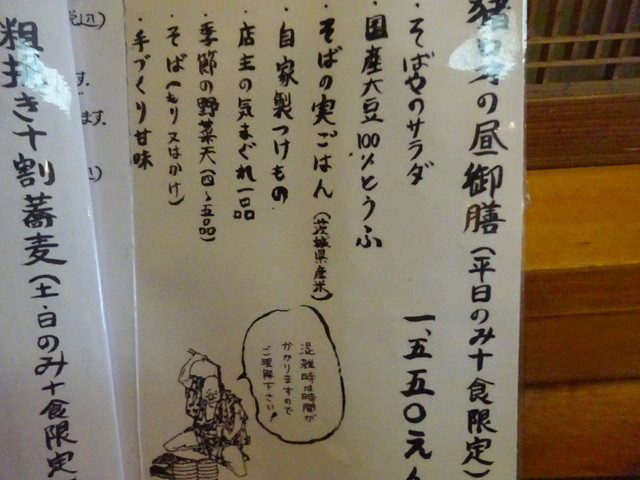 の昼御膳(平日のみ十食限定)
一、五五〇えん
・そばやのサラダ
・国産大豆100%とうふ
・そばの実ごはん(茨城県産米)
・自家製つけもの
・店主の気まぐれ一品
・季節の野菜天(四〜五品)
・そば(もり又はかけ)
・手づくり甘味
混雑時は時間が
かかりますので
ご理解下さい!
粗挽き十割蕎麦(土・日のみ十食限定